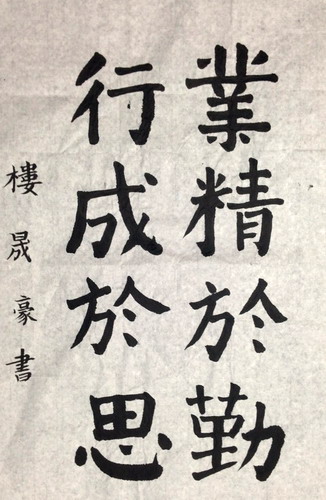 業精於勤
行成於思
樓晟豪書